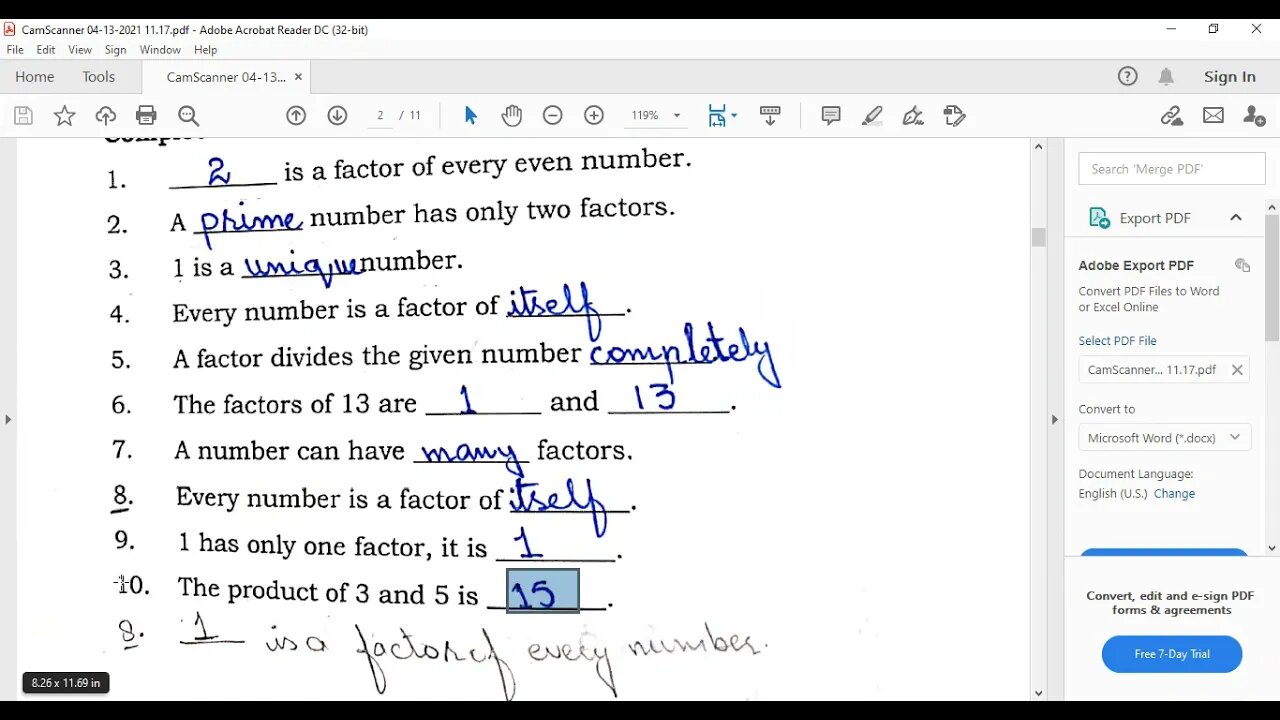 CamScanner 04-13-2021 11.17.pdf - Adobe Acrobat Reader DC (32-bit)
File Edit View Sign Window Help
Home Tools CamScanner 04-13... × Sign In
2 / 11 119%
1. 2 is a factor of every even number.
2. A prime number has only two factors.
3. 1 is a unique number.
4. Every number is a factor of itself.
5. A factor divides the given number completely
6. The factors of 13 are 1 and 13.
7. A number can have many factors.
8. Every number is a factor of itself.
9. 1 has only one factor, it is 1.
10. The product of 3 and 5 is 15.
8. 1 is a factor of every number.
8.26 x 11.69 in
Search 'Merge PDF'
Export PDF
Adobe Export PDF
Convert PDF Files to Word
or Excel Online
Select PDF File
CamScanner... 11.17.pdf
Convert to
Microsoft Word (*.docx)
Document Language:
English (U.S.) Change
Convert, edit and e-sign PDF
forms & agreements
Free 7-Day Trial